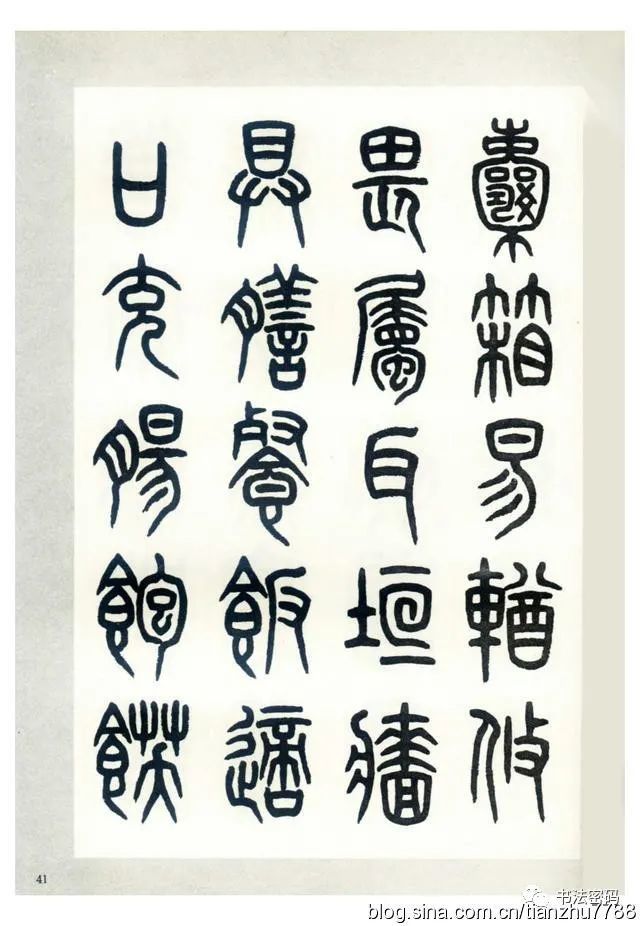 囊箱易輶攸
畏屬耳垣牆
具膳餐飯適
口充腸飽飫
41
书法密码
blog.sina.com.cn/tianzhu7788